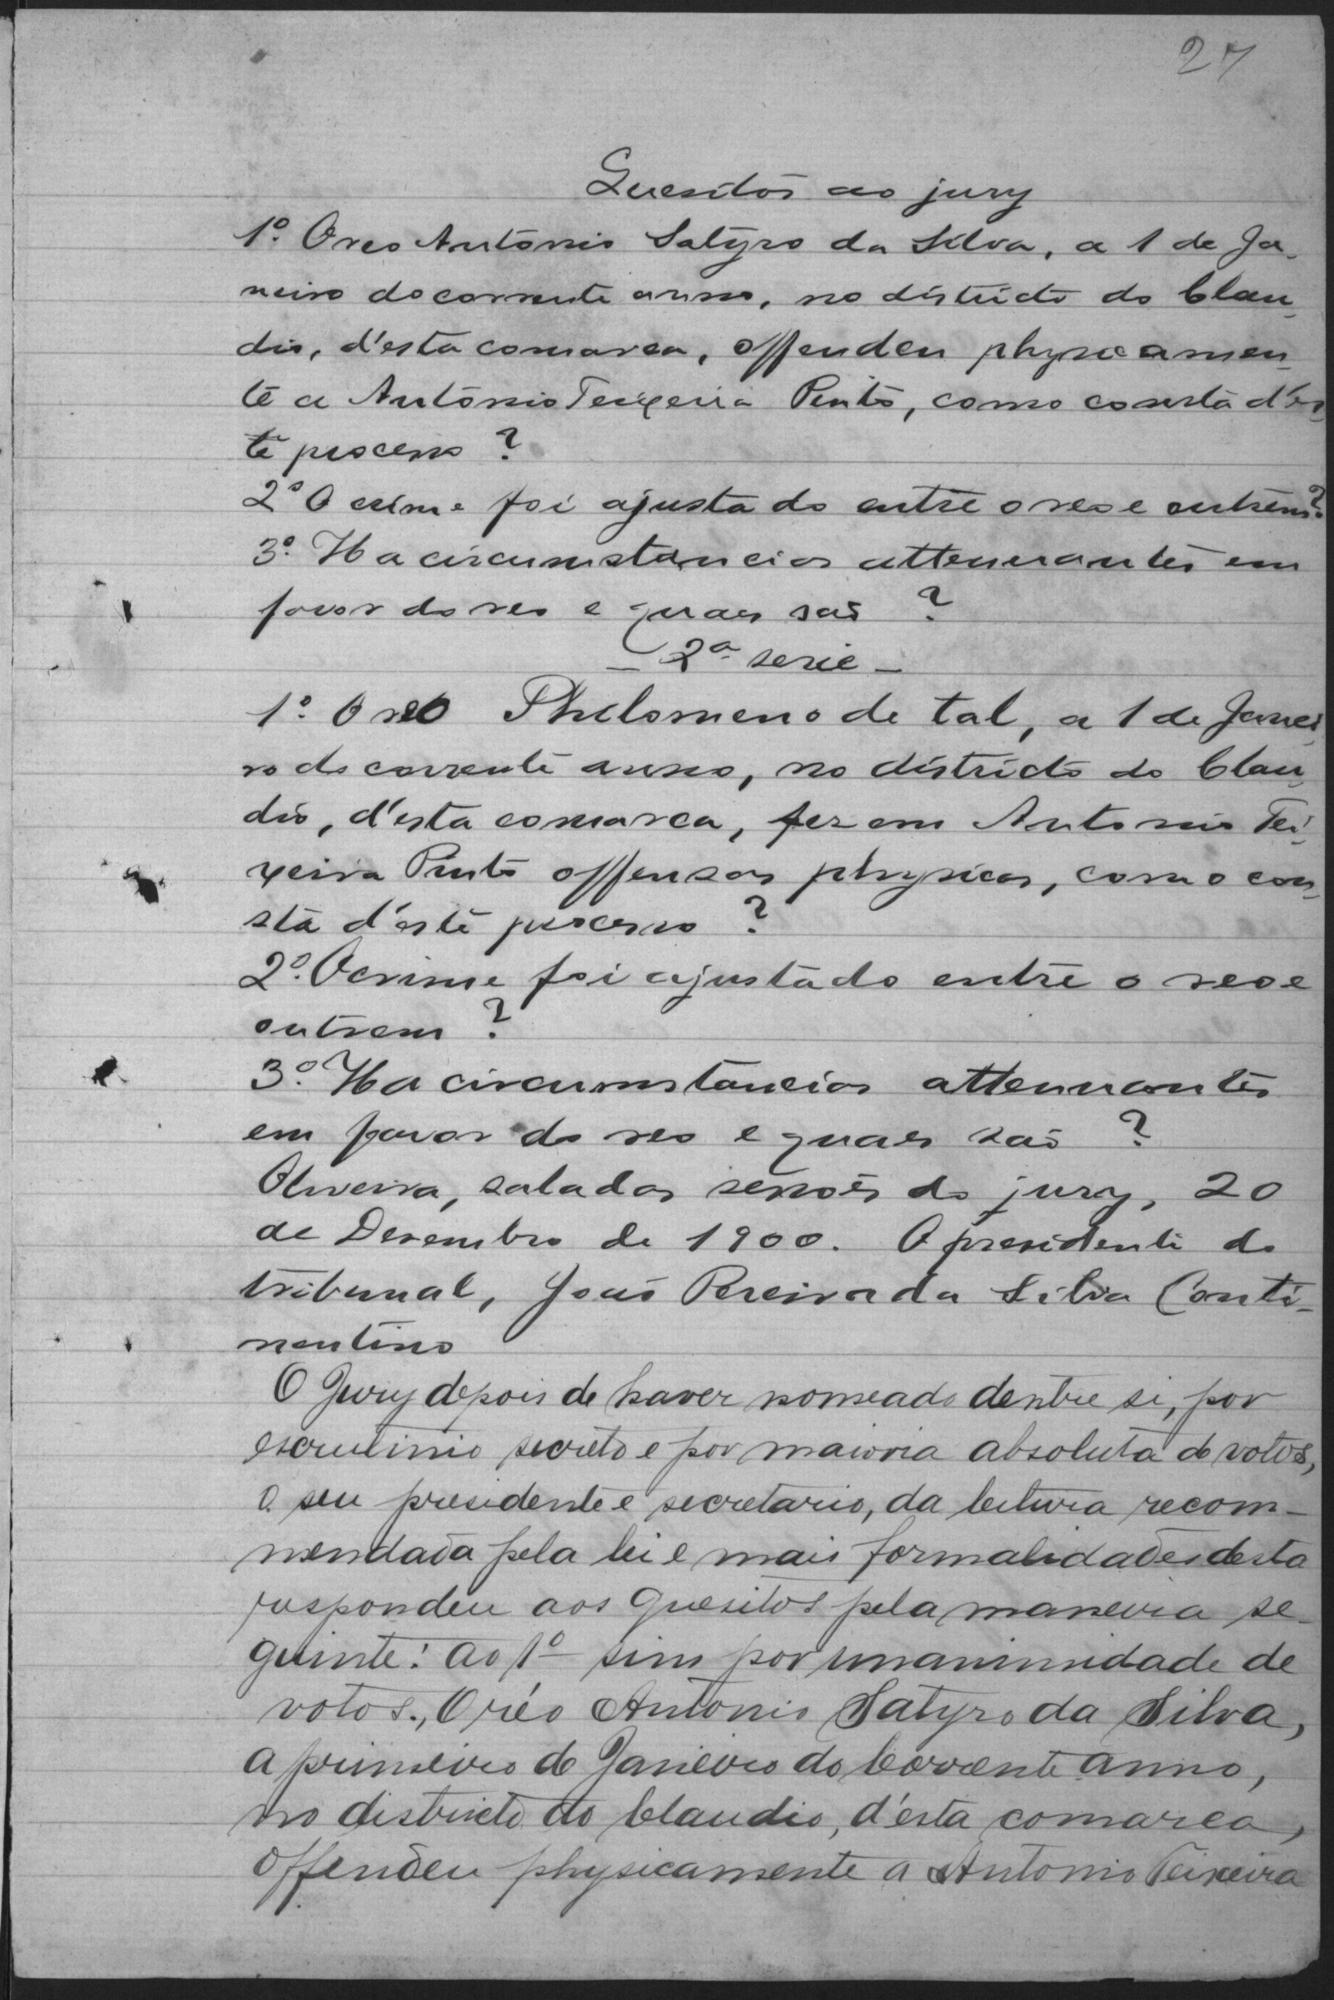 27
Quesitos ao jury
1º. O reo Antonio Satyro da Silva, a 1 de Ja-
neiro do corrente anno, no districto do Clau-
dio, d'esta comarca, offendeu physicamen-
te a Antonio Teixeira Pinto, como consta d'es-
te processo?
2º O crime foi ajustado entre o reo e outrem?
3º. Ha circumstancias attenuantes em
favor do reo e quaes são?
- 2ª serie -
1º. O reo Philomeno de tal, a 1 de Janei-
ro do corrente anno, no districto do Clau-
dio, d'esta comarca, fez em Antonio Tei-
xeira Pinto offensas physicas, como con-
sta d'este processo?
2º. O crime foi ajustado entre o reo e
outrem?
3º. Ha circumstancias attenuantes
em favor do reo e quaes são?
Oliveira, sala das sessões do jury, 20
de Dezembro de 1900. O presidente do
tribunal, João Pereira da Silva Conti-
nentino
O Jury depois de haver nomeado dentre si, por
escrutinio secreto e por maioria absoluta de votos,
o seu presidente e secretario, da leitura recom-
mendada pela lei e mais formalidades desta
respondeu aos quesitos pela maneira se-
guinte: ao 1º sim por unanimidade de
votos., O réo Antonio Satyro da Silva,
a primeiro de Janeiro do corrente anno,
no districto do Claudio, d'esta comarca,
offendeu physicamente a Antonio Teixeira